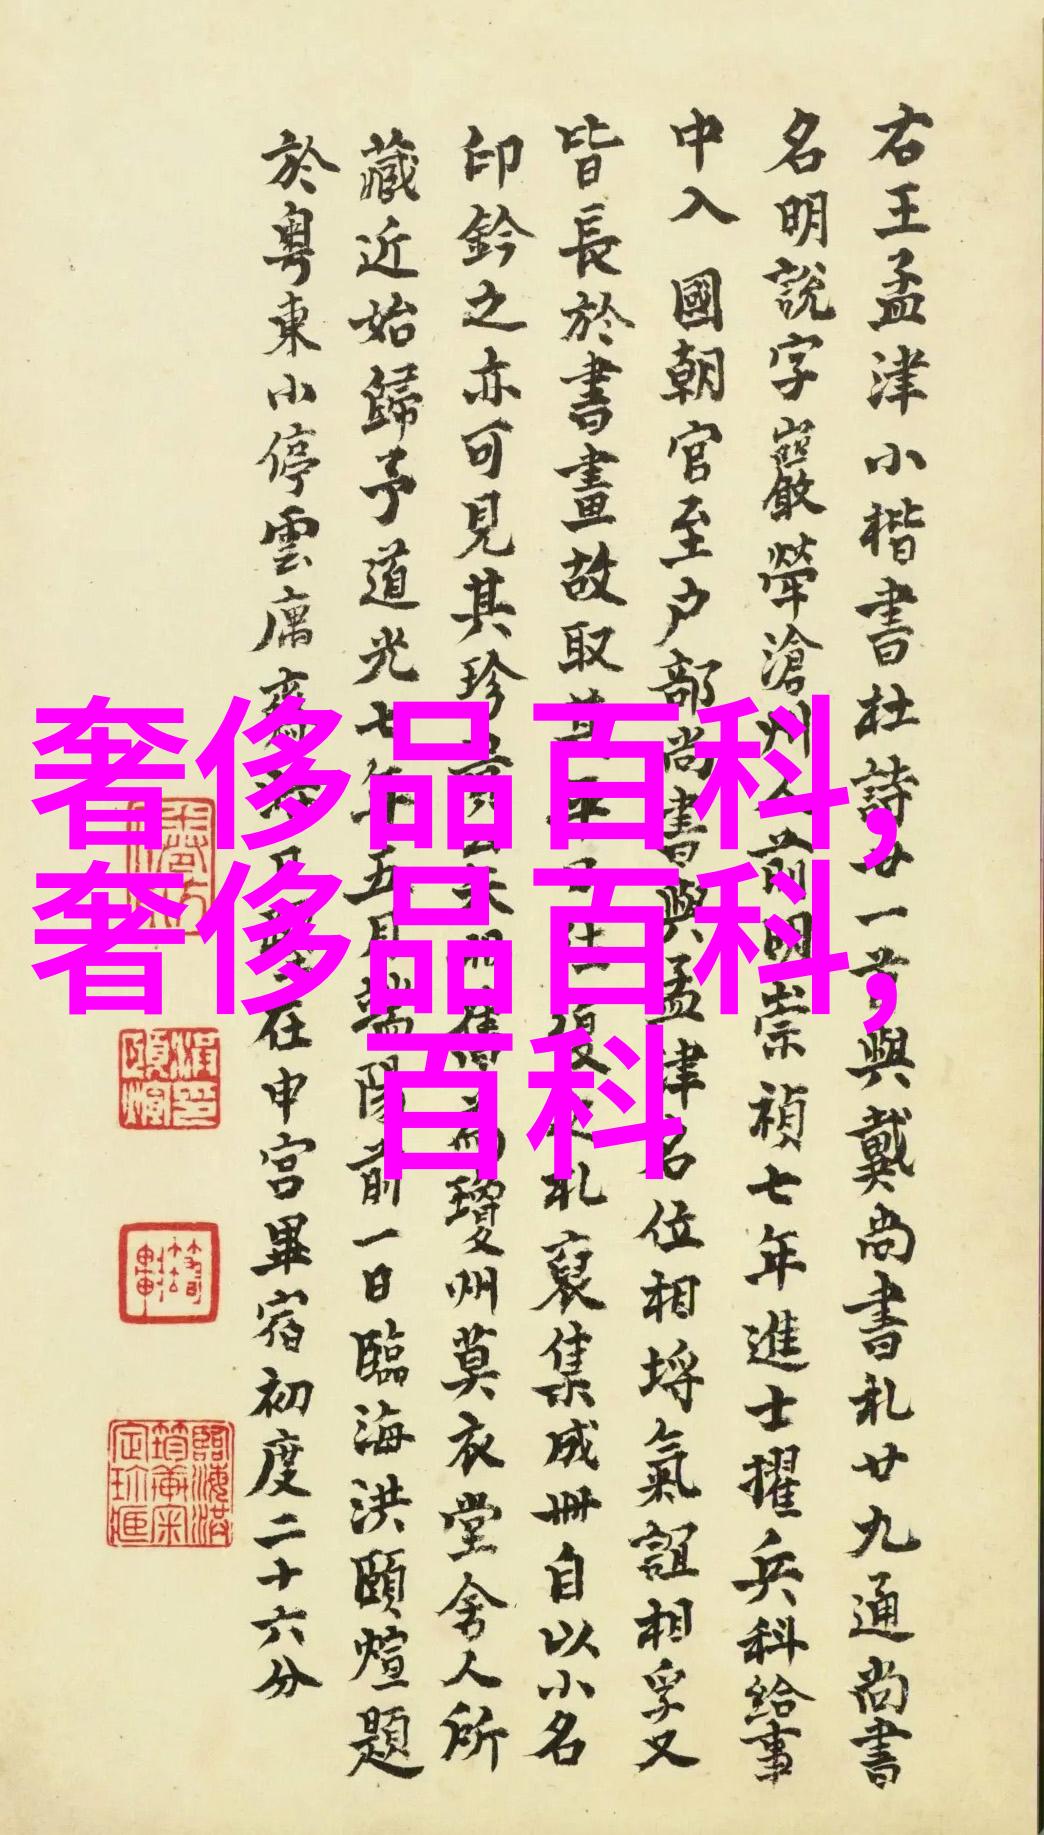 右王孟津小楷書杜詩廿一首與戴尚書札廿九通尚書
名明說字巖犖滄州人前明崇禎七年進士擢兵科給事
中入國朝官至户部尚書與孟津名位相埒氣誼相孚又
皆長於書畫故取其往復之札裒集成冊自以小名
印鈐之亦可見其珍舊為瓊州莫衣堂舍人所
藏近始歸予道光七年五月端陽前一日臨海洪頤煊題
於粵東小停雲庽在申宫畢宿初度二十六分
奢侈品百科,
奢侈品百科,
百科